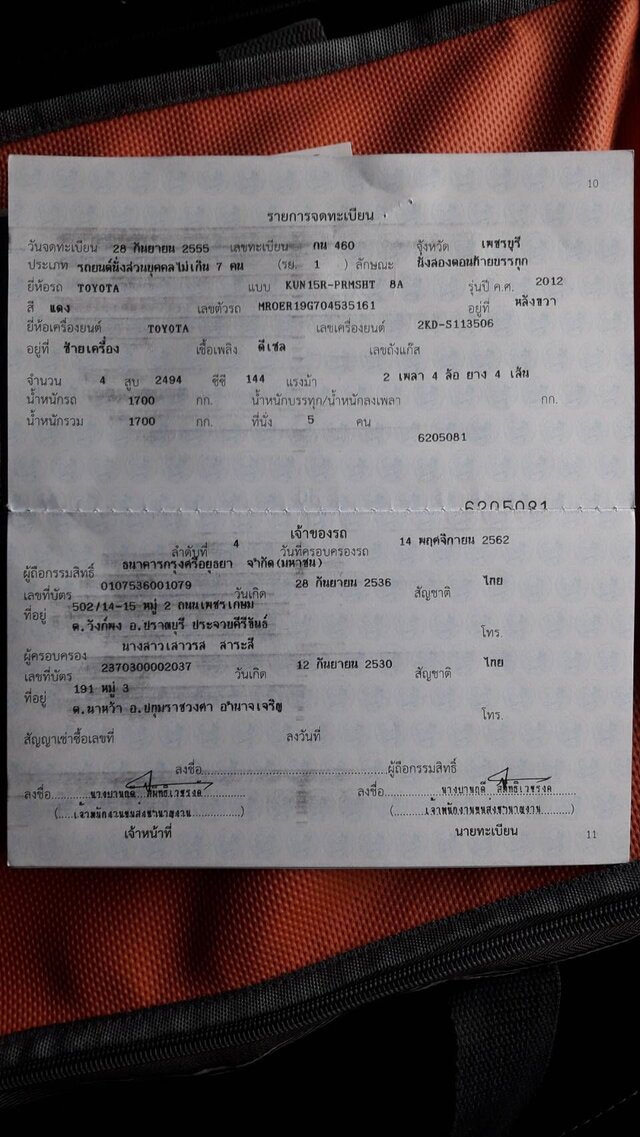 10
รายการจดทะเบียน
วันจดทะเบียน 28 กันยายน 2555 เลขทะเบียน กน 460 จังหวัด เพชรบุรี
ประเภท รถยนต์นั่งส่วนบุคคลไม่เกิน 7 คน (รย. 1 ) ลักษณะ นั่งสองตอนท้ายบรรทุก
ยี่ห้อรถ TOYOTA แบบ KUN15R-PRMSHT 8A รุ่นปี ค.ศ. 2012
สี แดง เลขตัวรถ MROER19G704535161 อยู่ที่ หลังขวา
ยี่ห้อเครื่องยนต์ TOYOTA เลขเครื่องยนต์ 2KD-S113506
อยู่ที่ ซ้ายเครื่อง เชื้อเพลิง ดีเซล เลขถังแก๊ส
จำนวน 4 สูบ 2494 ซีซี 144 แรงม้า 2 เพลา 4 ล้อ ยาง 4 เส้น
น้ำหนักรถ 1700 กก. น้ำหนักบรรทุก/น้ำหนักลงเพลา กก.
น้ำหนักรวม 1700 กก. ที่นั่ง 5 คน
6205081
6205081
เจ้าของรถ
ลำดับที่ 4 วันที่ครอบครองรถ 14 พฤศจิกายน 2562
ผู้ถือกรรมสิทธิ์ ธนาคารกรุงศรีอยุธยา จำกัด(มหาชน)
เลขที่บัตร 0107536001079 วันเกิด 28 กันยายน 2536 สัญชาติ ไทย
ที่อยู่ 502/14-15 หมู่ 2 ถนนเพชรเกษม
ต.วังก์พง อ.ปราณบุรี ประจวบคีรีขันธ์ โทร.
ผู้ครอบครอง นางสาวเสาวรส สาระสี
เลขที่บัตร 2370300002037 วันเกิด 12 กันยายน 2530 สัญชาติ ไทย
ที่อยู่ 191 หมู่ 3
ต.นาหว้า อ.ปทุมราชวงศา อำนาจเจริญ โทร.
สัญญาเช่าซื้อเลขที่ ลงวันที่
ลงชื่อ ผู้ถือกรรมสิทธิ์
ลงชื่อ ลงชื่อ
(เจ้าพนักงานขนส่งชำนาญงาน) (เจ้าพนักงานขนส่งชำนาญงาน)
เจ้าหน้าที่ นายทะเบียน
11